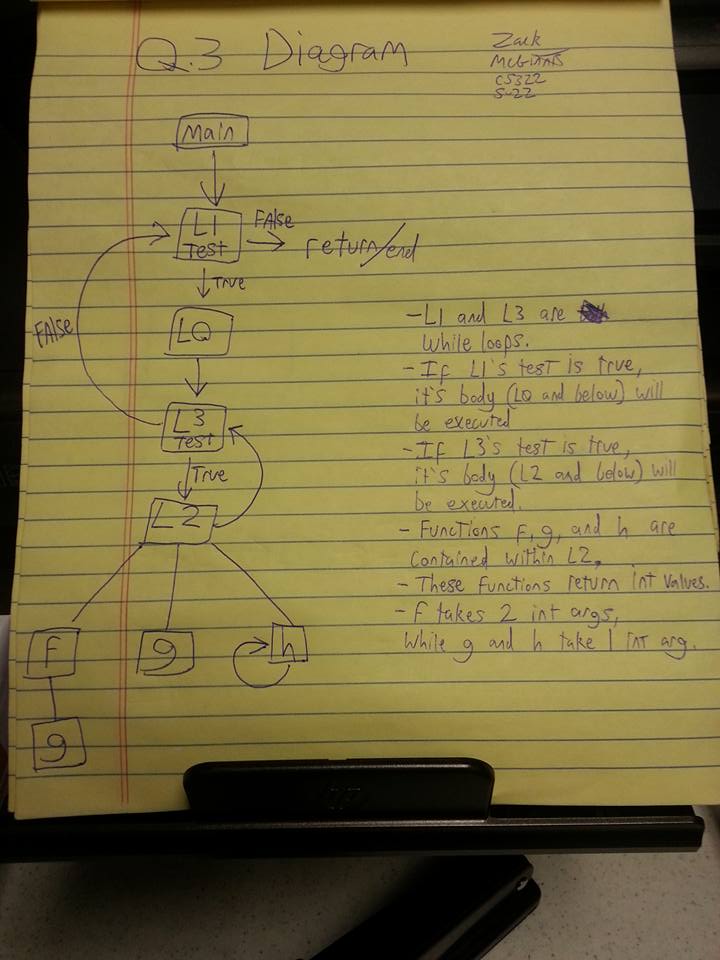 Q.3 Diagram
Zack
CS322
S-22
Main
L1
Test
False
return/end
True
L0
False
L3
Test
True
L2
f
g
h
g
-L1 and L3 are
while loops.
-If L1's test is true,
it's body (L0 and below) will
be executed
-If L3's test is true,
it's body (L2 and below) will
be executed.
- Functions f, g, and h are
contained within L2.
- These functions return int values.
- f takes 2 int args,
while g and h take 1 int arg.